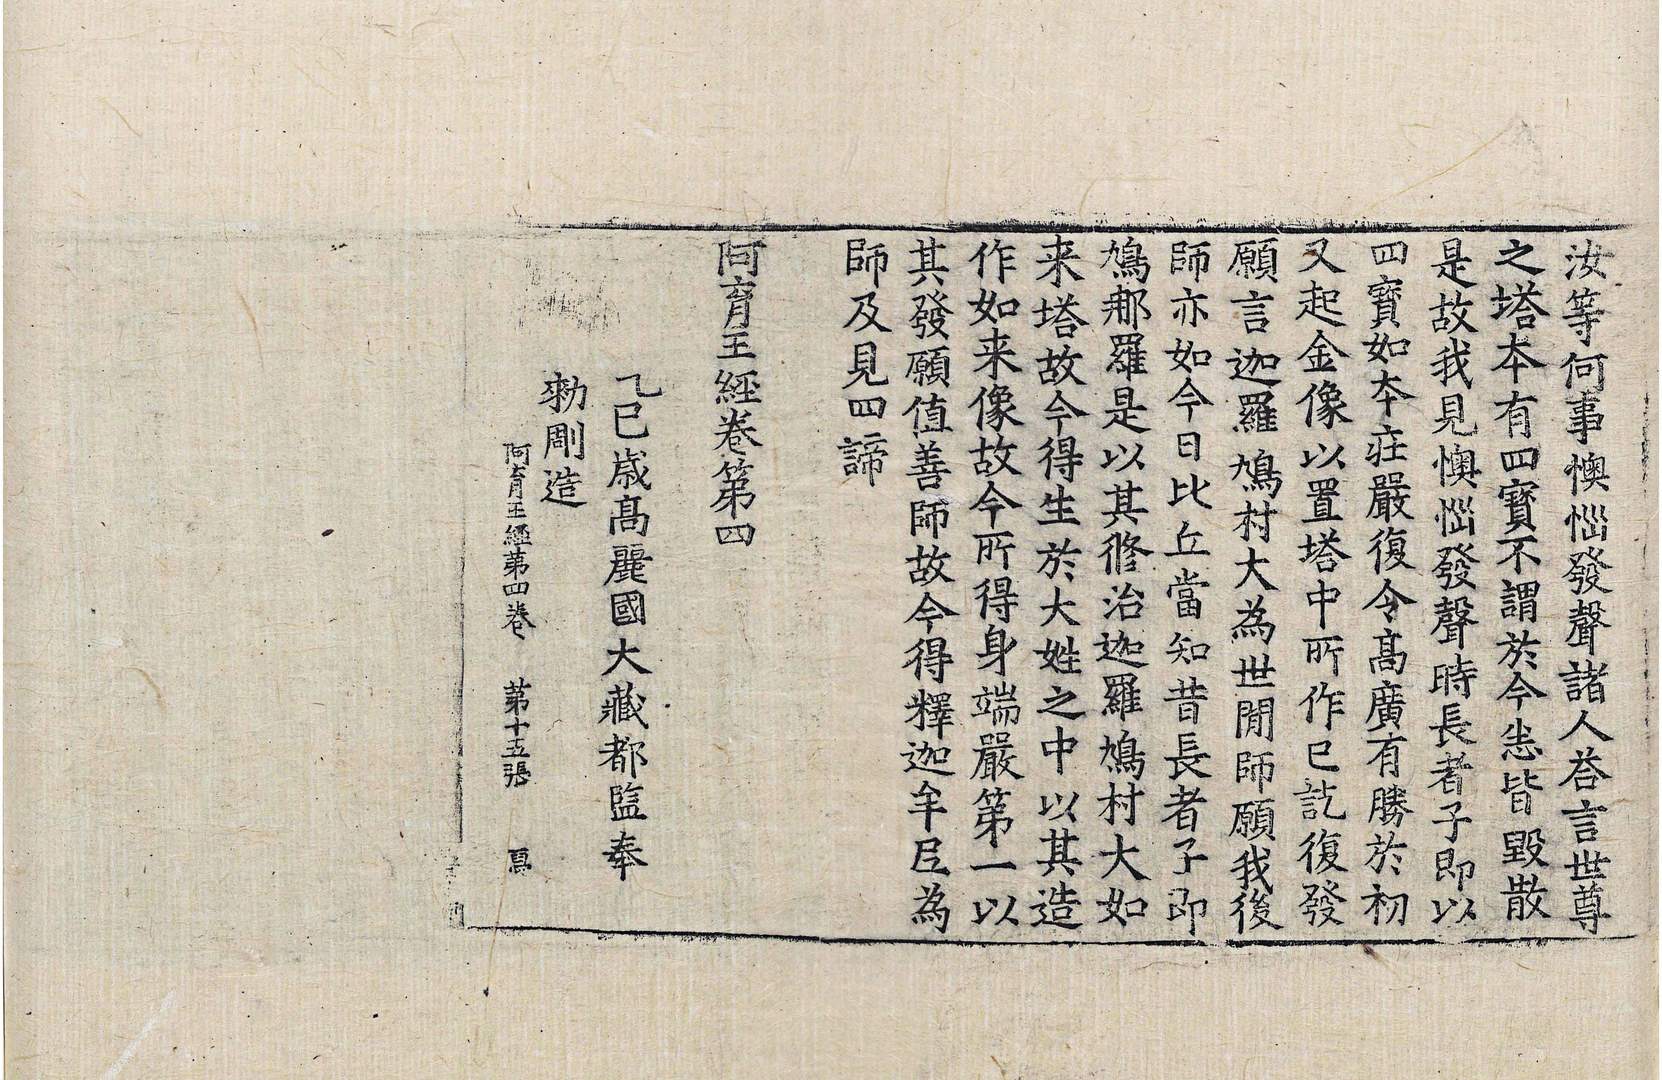 汝等何事懊惱發聲諸人荅言世尊
之塔本有四寶不謂於今悉皆毀散
是故我見懊惱發聲時長者子即以
四寶如本莊嚴復令高廣有勝於初
又起金像以置塔中所作已訖復發
願言迦羅鳩村大為世閒師願我後
師亦如今日比丘當知昔長者子即
鳩那羅是以其修治迦羅鳩村大如
来塔故今得生於大姓之中以其造
作如来像故今所得身端嚴第一以
其發願值善師故今得釋迦牟尼為
師及見四諦
阿育王經卷第四
乙巳歲高麗國大藏都監奉
勑彫造
阿育王經第四卷 第十五張